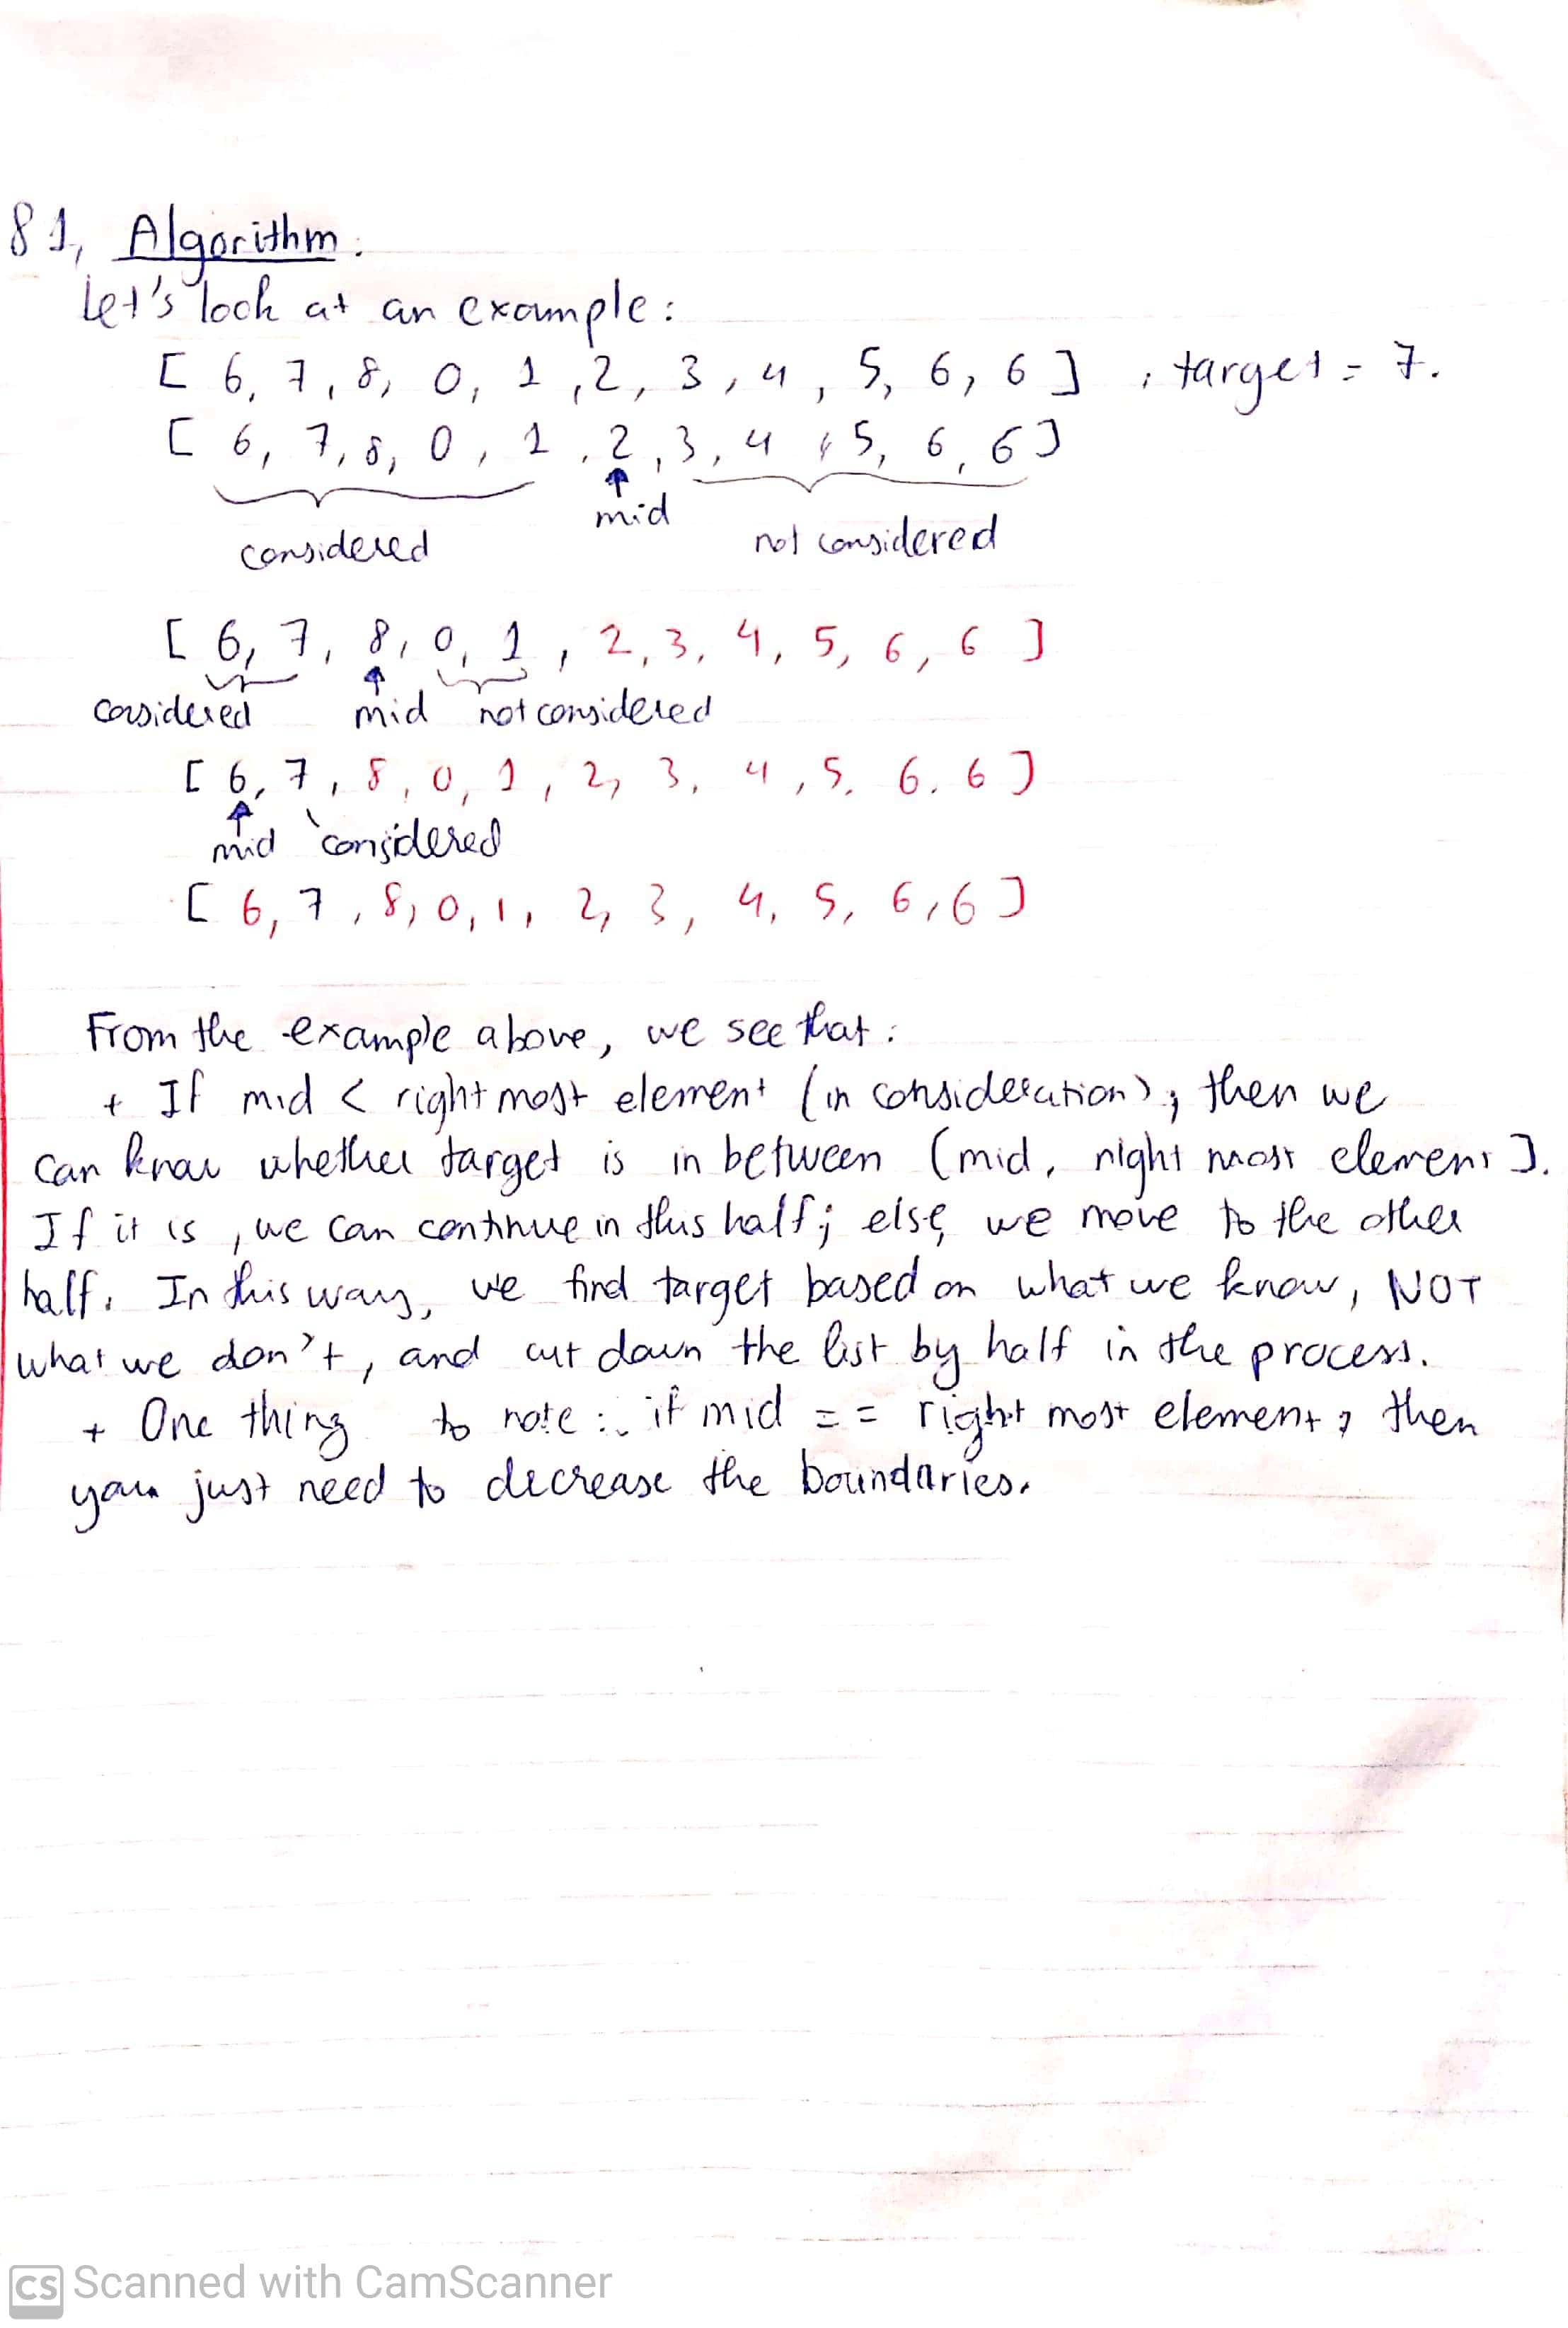 81, Algorithm:
Let's look at an example:
[ 6, 7, 8, 0, 1, 2, 3, 4, 5, 6, 6 ] , target = 7.
[ 6, 7, 8, 0, 1, 2, 3, 4, 5, 6, 6 ]
considered mid not considered
[ 6, 7, 8, 0, 1, 2, 3, 4, 5, 6, 6 ]
considered mid not considered
[ 6, 7, 8, 0, 1, 2, 3, 4, 5, 6, 6 ]
mid considered
[ 6, 7, 8, 0, 1, 2, 3, 4, 5, 6, 6 ]
From the example above, we see that:
+ If mid < right most element (in consideration), then we
can know whether target is in between (mid, right most element].
If it is, we can continue in this half; else, we move to the other
half. In this way, we find target based on what we know, NOT
what we don't, and cut down the list by half in the process.
+ One thing to note: if mid == right most element, then
you just need to decrease the boundaries.
CS Scanned with CamScanner